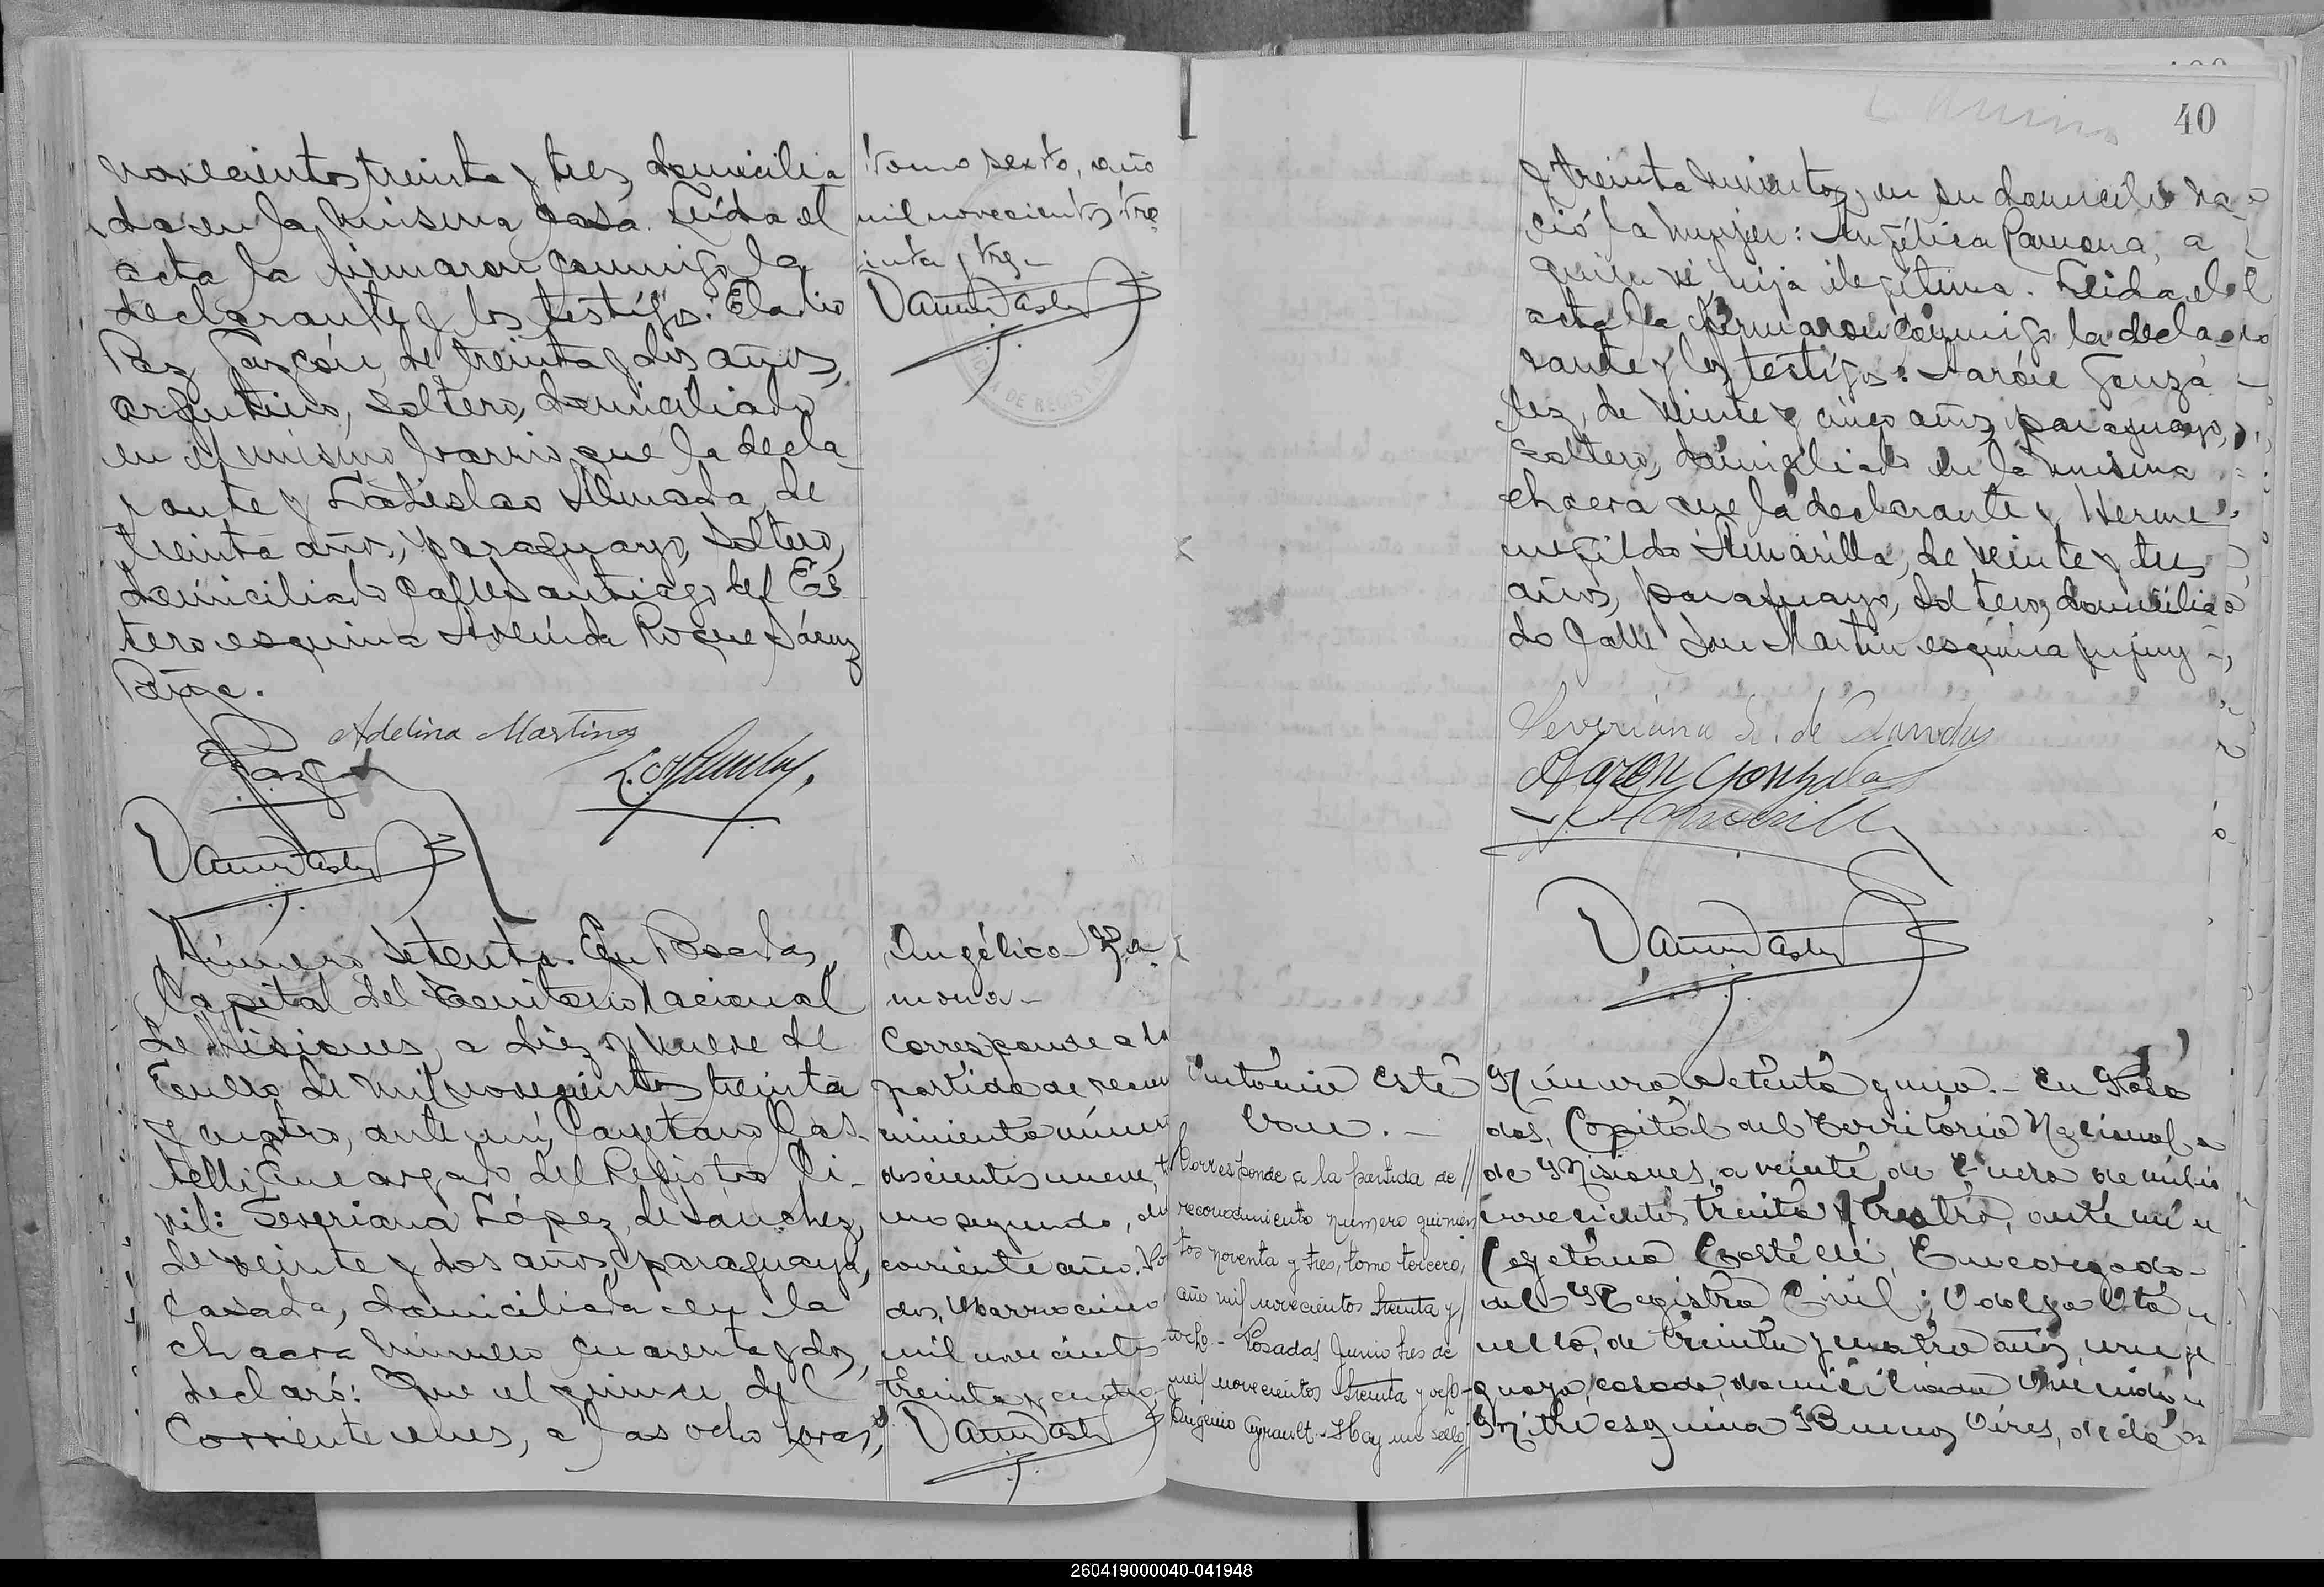 novecientos treinta y tres, domicilia
da en la misma casa. Leída el
acta la firmaron conmigo la
declarante y los testigos: Eladio
Paz Garzón, de treinta y dos años,
argentino, soltero, domiciliado
en el mismo barrio que la decla
rante y Ladislao Almada, de
treinta años, paraguayo, soltero,
domiciliado calle Santiago del Es
tero esquina Avenida Roque Sáenz
Peña.
Adelina Martinez
tomo sexto, año
mil novecientos tre
inta y tres.-
Número setenta. En Posadas,
Capital del Territorio Nacional
de Misiones, a diez y nueve de
Enero de mil novecientos treinta
y cuatro, ante mí, Cayetano Cas-
telli, Encargado del Registro Ci-
vil: Severiana López de Sánchez,
de veinte y dos años, paraguaya,
casada, domiciliada en la
chacra número cuarenta y dos,
declaró: Que el quince del
corriente mes, a las ocho horas,
Angélica Ra-
mona-
Corresponde a la
partida de recono
cimiento número
doscientos nueve, to
mo segundo, del
corriente año. Po
das, Marzo cinco
mil novecientos
treinta y cuatro.
40
y treinta minutos, en su domicilio na
ció la mujer: Angélica Ramona, a
quien vi, hija ilegítima. Leída el
acta la firmaron conmigo la decla
rante y los testigos: Aarón Gonzá
lez, de veinte y cinco años, paraguayo,
soltero, domiciliado en la misma
chacra que la declarante y Herme
negildo Amarilla, de veinte y tres
años, paraguayo, soltero, domicilia
do calle San Martín esquina Jujuy-
Severiana L. de Sanches
Aaron Gonzalez
H. Amarilla
Antonio Esté
ban.-
Corresponde a la partida de //
reconocimiento número quinien
tos noventa y tres, tomo tercero,
año mil novecientos treinta y //
ocho.- Posadas Junio tres de
mil novecientos treinta y ocho-
Eugenio Ayrault.- Hay un sello //
Número setenta y uno.- En Posa
das, Capital del Territorio Nacional
de Misiones, a veinte de Enero de mil
novecientos treinta y cuatro, ante mí
Cayetano Castelli, Encargado
del Registro Civil;
de treinta y cuatro años, uru
guaya, casada, domiciliada Avenida
Mitre esquina Buenos Aires, decla
260419000040-041948